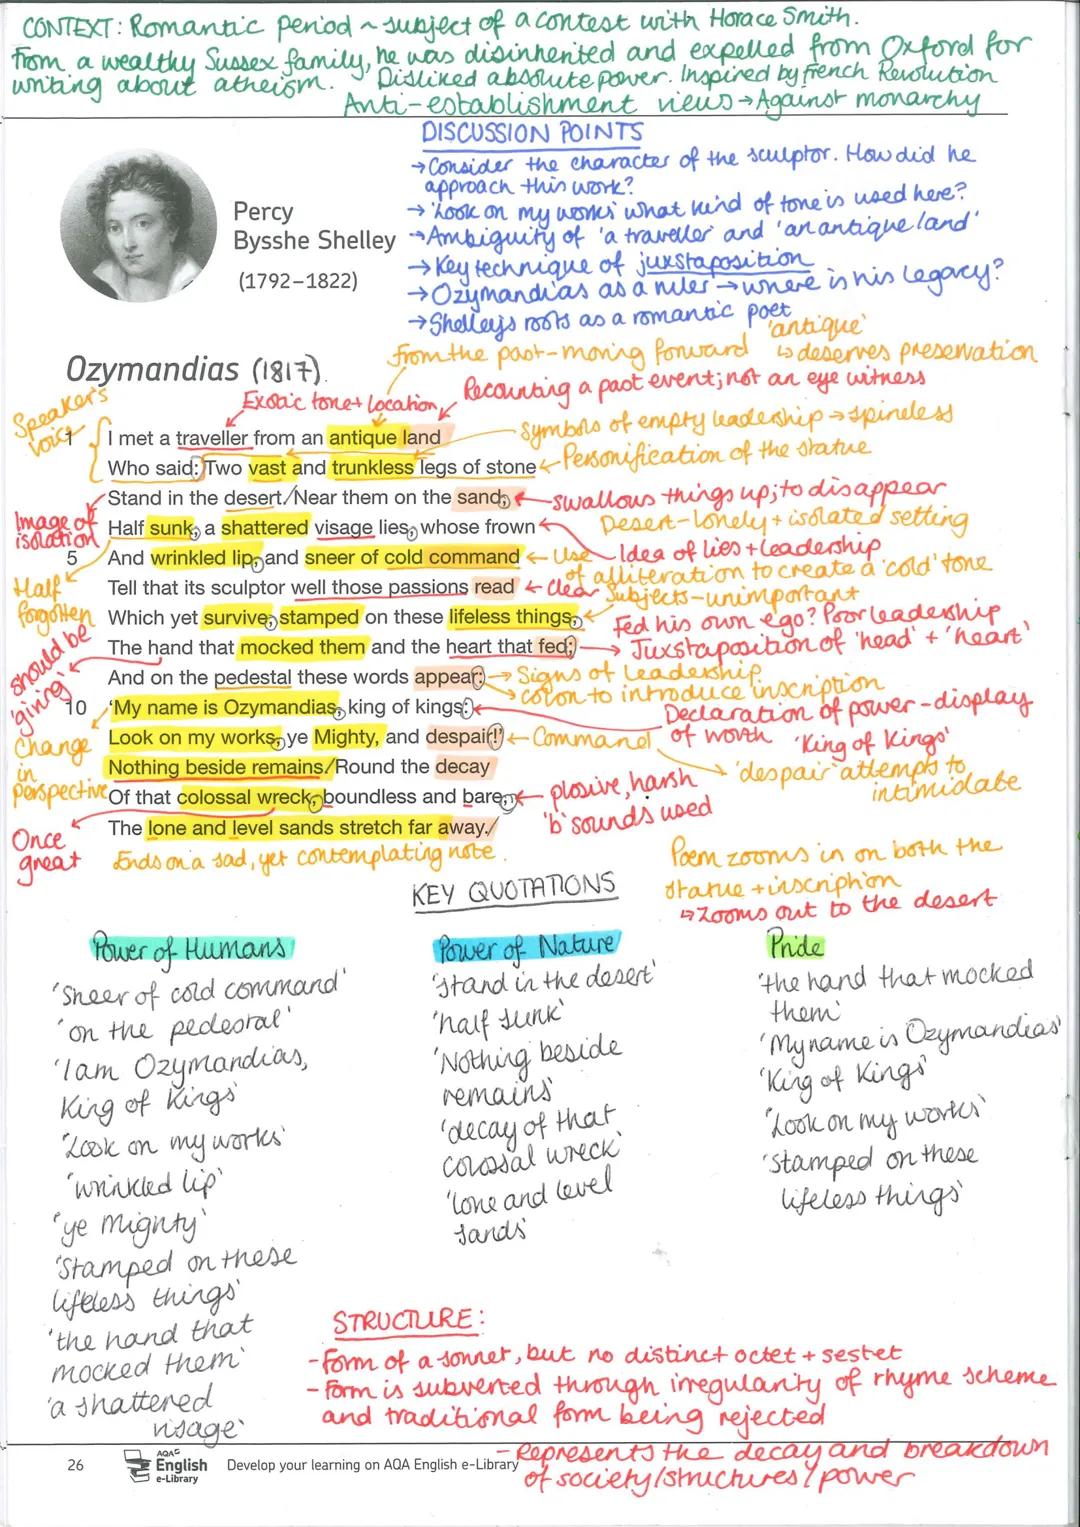 CONTEXT: Romantic period ~ subject of a contest with Horace Smith.
From a wealthy Sussex family, he was disinherited and expelled from Oxford for
writing about atheism. Disliked absolute power. Inspired by French Revolution
Anti-establishment views → Against monarchy
DISCUSSION POINTS
→ Consider the character of the sculptor. How did he
approach this work?
→ 'Look on my works' what kind of tone is used here?
→ Ambiguity of 'a traveller' and 'an antique land'
→ Key technique of juxstaposition
→ Ozymandias as a ruler → where is his legacy?
→ Shelley's roots as a romantic poet
Percy
Bysshe Shelley
(1792–1822)
'antique'
↳ deserves preservation
from the past - moving forward
Ozymandias (1817)
Recounting a past event; not an eye witness
Exotic tone + location
Speaker's
voice
1 I met a traveller from an antique land
symbols of empty leadership → spineless
Who said: Two vast and trunkless legs of stone
Personification of the statue
Stand in the desert./Near them on the sand,
swallows things up; to disappear
Image of
isolation
Half sunk, a shattered visage lies, whose frown
Desert - lonely + isolated setting
Idea of lies + leadership
5 And wrinkled lip, and sneer of cold command
Use
of alliteration to create a 'cold' tone
Half
forgotten
Tell that its sculptor well those passions read
clear
Subjects - unimportant
Which yet survive, stamped on these lifeless things,
Fed his own ego? Poor leadership
The hand that mocked them and the heart that fed;
Juxstaposition of 'head' + 'heart'
should be
'giving'
And on the pedestal these words appear:
Signs of leadership.
colon to introduce inscription
10 'My name is Ozymandias, king of kings:
Declaration of power - display
of worth 'King of Kings'
Change
in
perspective
Look on my works, ye Mighty, and despair!'
Command
'despair' attempts to
intimidate
Nothing beside remains./Round the decay
Of that colossal wreck, boundless and bare,
plosive, harsh
'b' sounds used
Once
great
The lone and level sands stretch far away./
Ends on a sad, yet contemplating note.
Poem zooms in on both the
statue + inscription
↳ Zooms out to the desert
KEY QUOTATIONS
Power of Humans
'Sneer of cold command'
'on the pedestal'
'I am Ozymandias,
King of Kings'
'Look on my works'
'wrinkled lip'
'ye Mighty'
'Stamped on these
lifeless things'
'the hand that
mocked them'
'a shattered
visage'
Power of Nature
'stand in the desert'
'half sunk'
'Nothing beside
remains'
'decay of that
colossal wreck'
'lone and level
sands'
Pride
'the hand that mocked
them'
'My name is Ozymandias'
'King of Kings'
'Look on my works'
'Stamped on these
lifeless things'
STRUCTURE:
- Form of a sonnet, but no distinct octet + sestet
- Form is subverted through irregularity of rhyme scheme
and traditional form being rejected
- Represents the decay and breakdown
of society/structures/power
26
AQA
English
e-Library
Develop your learning on AQA English e-Library